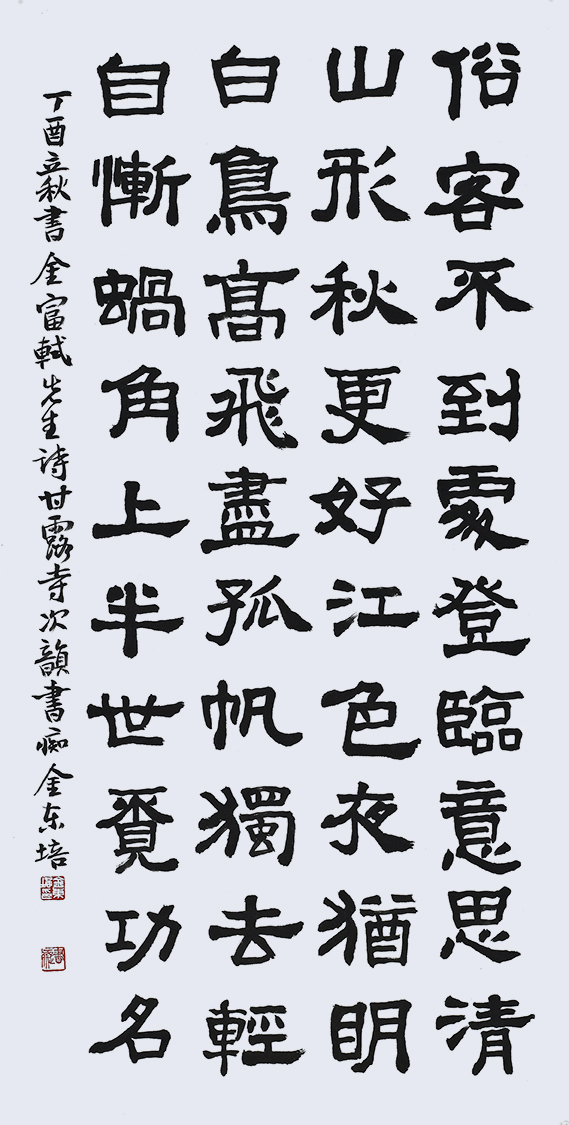 俗客不到處登臨意思清
山形秋更好江色夜猶明
白鳥高飛盡孤帆獨去輕
自慚蝸角上半世覓功名
丁酉立秋書金富軾先生詩甘露寺次韻書痴金东培